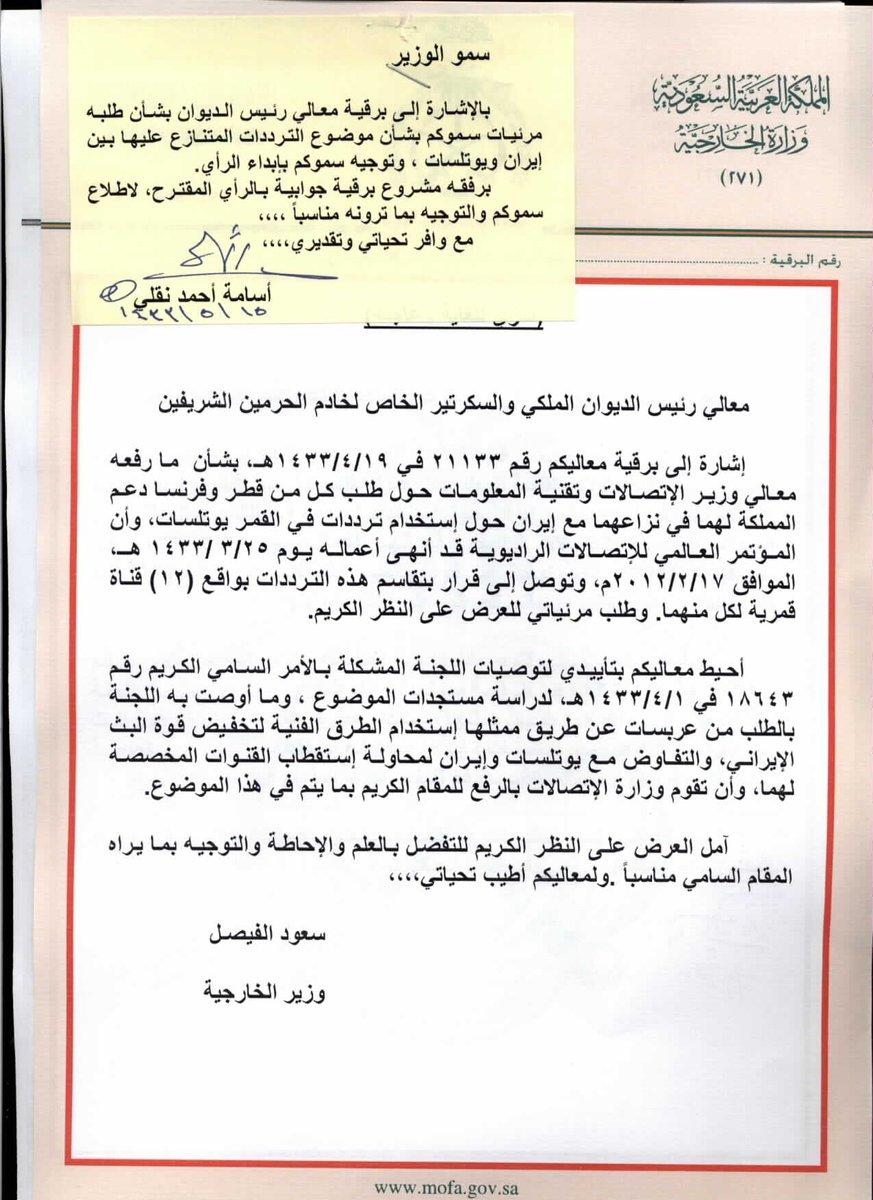 سمو الوزير
بالإشارة إلى برقية معالي رئيس الديوان بشأن طلبه
مرئيات سموكم بشأن موضوع الترددات المتنازع عليها بين
إيران ويوتلسات ، وتوجيه سموكم بإبداء الرأي.
برفقه مشروع برقية جوابية بالرأي المقترح، لاطلاع
سموكم والتوجيه بما ترونه مناسباً ،،،،
مع وافر تحياتي وتقديري،،،،
أسامة أحمد نقلي
١٤٣٣/٥/١٥
المملكة العربية السعودية
وزارة الخارجية
(٢٧١)
رقم البرقية :
معالي رئيس الديوان الملكي والسكرتير الخاص لخادم الحرمين الشريفين
إشارة إلى برقية معاليكم رقم ٢١١٣٣ في ١٤٣٣/٤/١٩هـ، بشأن ما رفعه
معالي وزير الإتصالات وتقنية المعلومات حول طلب كل من قطر وفرنسا دعم
المملكة لهما في نزاعهما مع إيران حول إستخدام ترددات في القمر يوتلسات، وأن
المؤتمر العالمي للإتصالات الراديوية قد أنهى أعماله يوم ١٤٣٣/ ٣/٢٥ هـ،
الموافق ٢٠١٢/٢/١٧م، وتوصل إلى قرار بتقاسم هذه الترددات بواقع (١٢) قناة
قمرية لكل منهما. وطلب مرئياتي للعرض على النظر الكريم.
أحيط معاليكم بتأييدي لتوصيات اللجنة المشكلة بالأمر السامي الكريم رقم
١٨٦٤٣ في ١٤٣٣/٤/١هـ، لدراسة مستجدات الموضوع ، وما أوصت به اللجنة
بالطلب من عربسات عن طريق ممثلها إستخدام الطرق الفنية لتخفيض قوة البث
الإيراني، والتفاوض مع يوتلسات وإيران لمحاولة إستقطاب القنوات المخصصة
لهما، وأن تقوم وزارة الإتصالات بالرفع للمقام الكريم بما يتم في هذا الموضوع.
آمل العرض على النظر الكريم للتفضل بالعلم والإحاطة والتوجيه بما يراه
المقام السامي مناسباً .ولمعاليكم أطيب تحياتي،،،،
سعود الفيصل
وزير الخارجية
www.mofa.gov.sa